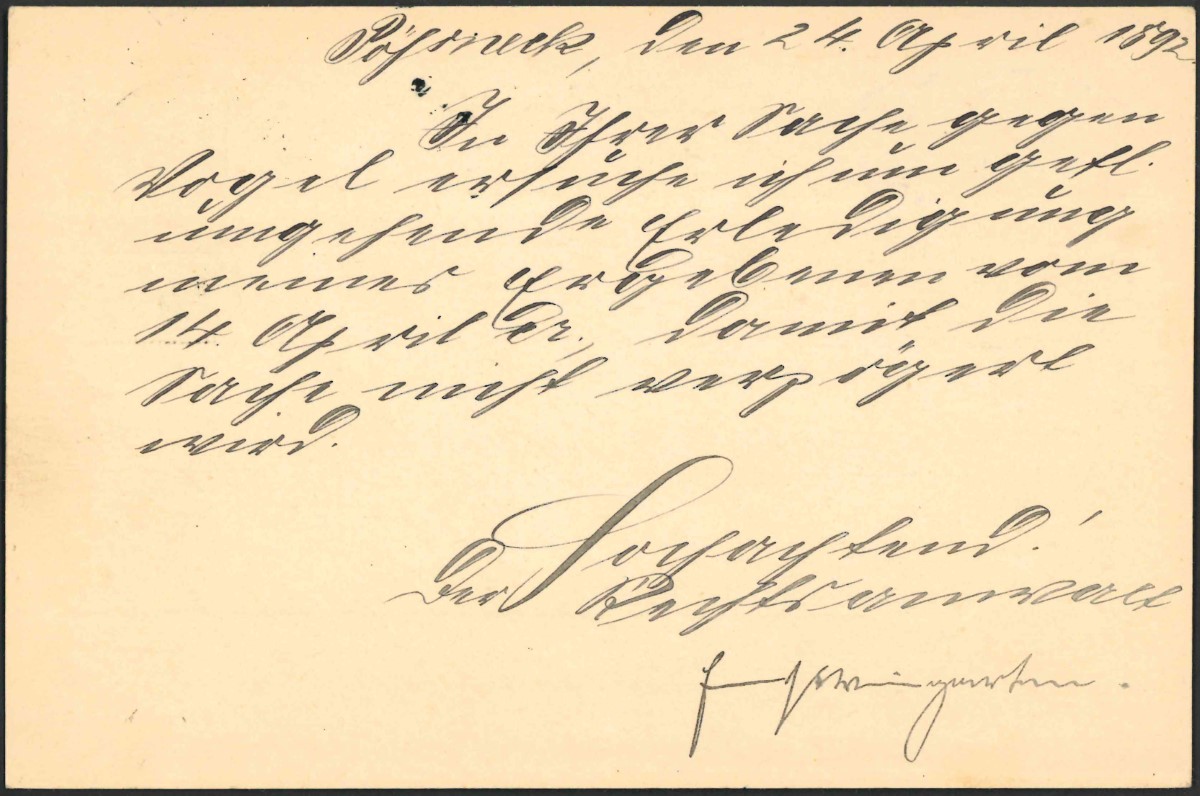 Pößneck, den 24. April 1892.
In Ihrer Sache gegen
Vogel ersuche ich um gefl.
umgehende Erledigung
meines Ergebenen vom
14. April cr., damit die
Sache nicht verzögert
wird.
Hochachtend!
Der Rechtsanwalt